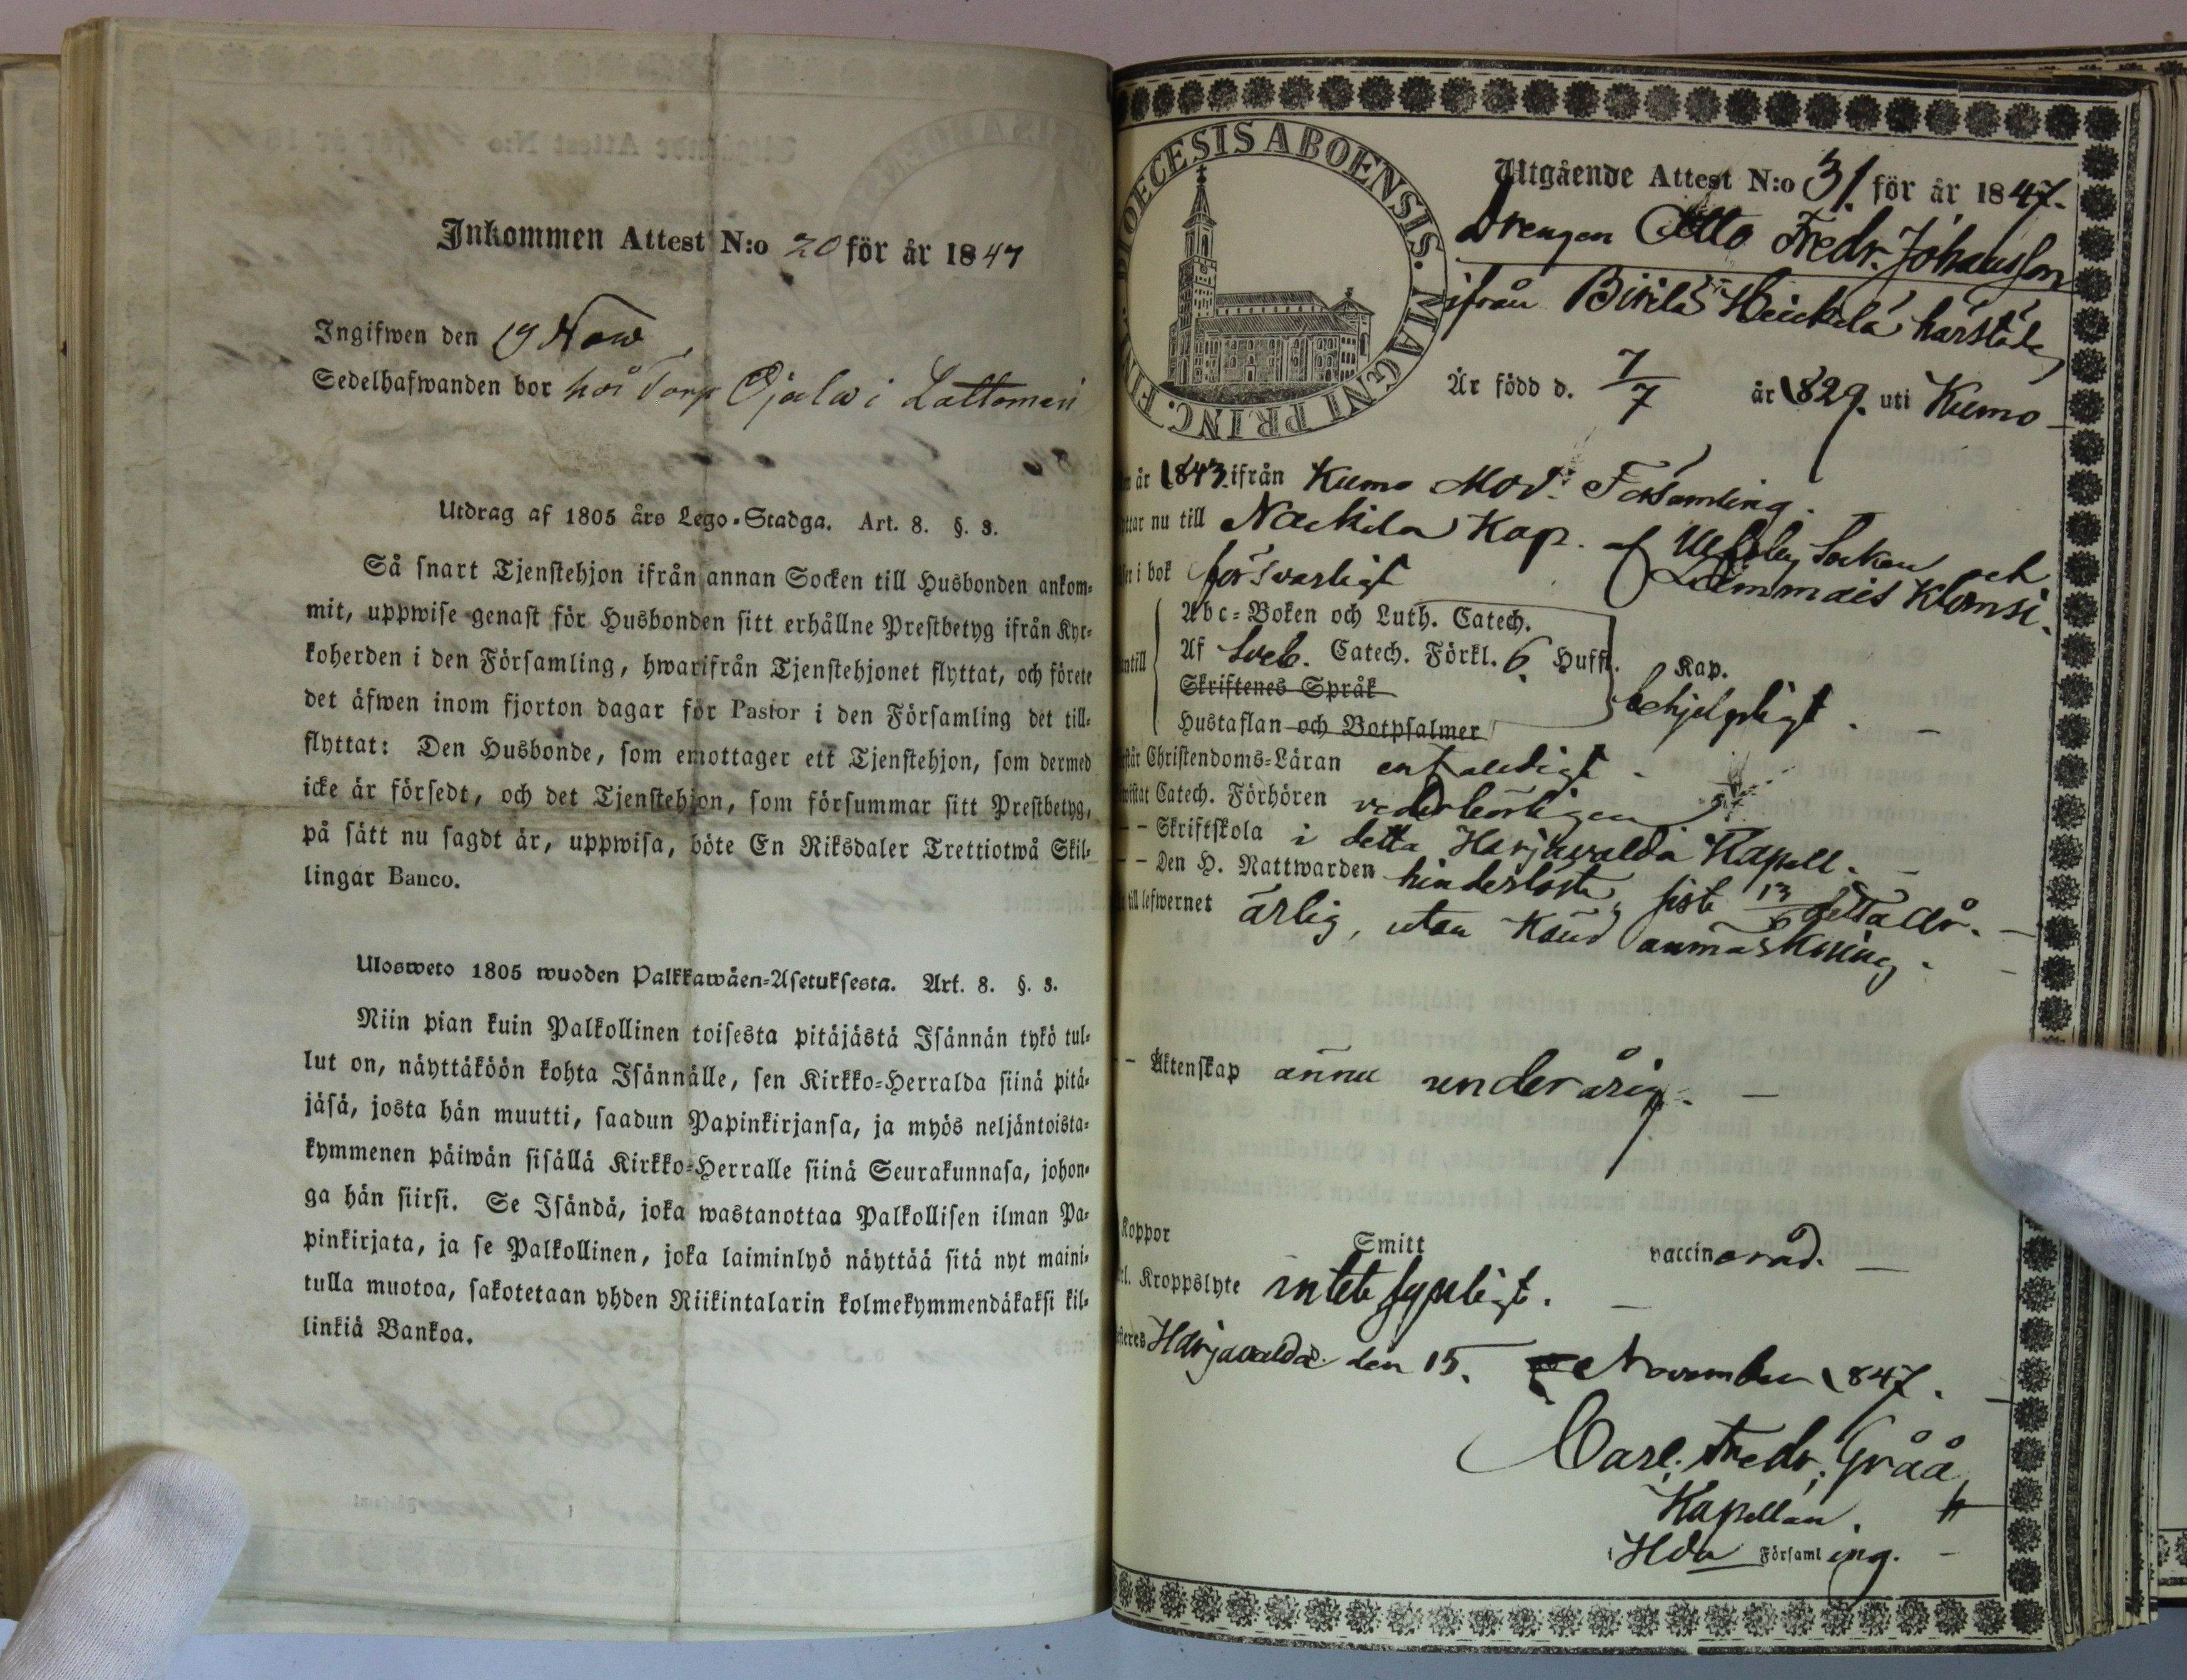 Inkommen Attest N:o 20 för år 1847
Ingifwen den 19 Now
Sedelhafwanden bor hos Torp Ojala i Lattomeri
Utdrag af 1805 års Lego-Stadga. Art. 8. §. 3.
Så snart Tjenstehjon ifrån annan Socken till Husbonden ankom-
mit, uppwise genast för Husbonden sitt erhållne Prestbetyg ifrån Kyr-
koherden i den Församling, hwarifrån Tjenstehjonet flyttat, och förete
det äfwen inom fjorton dagar för Pastor i den Församling det till-
flyttat: Den Husbonde, som emottager ett Tjenstehjon, som dermed
icke är försedt, och det Tjenstehjon, som försummar sitt Prestbetyg,
på sätt nu sagdt är, uppwisa, böte En Riksdaler Trettiotwå Skil-
lingar Banco.
Ulosweto 1805 wuoden Palkkawäen-Asetuksesta. Art. 8. §. 3.
Niin pian kuin Palkollinen toisesta pitäjästä Isännän tykö tul-
lut on, näyttäköön kohta Isännälle, sen Kirkko-Herralda siinä pitä-
jäsä, josta hän muutti, saadun Papinkirjansa, ja myös neljäntoista-
kymmenen päiwän sisällä Kirkko-Herralle siinä Seurakunnasa, johon-
ga hän siirsi. Se Isändä, joka wastanottaa Palkollisen ilman Pa-
pinkirjata, ja se Palkollinen, joka laiminlyö näyttää sitä nyt maini-
tulla muotoa, sakotetaan yhden Riikintalarin kolmekymmendäkaksi kil-
linkiä Bankoa.
DIOECESIS ABOENSIS. MAGNI PRINC. FINL.
Utgående Attest N:o 31. för år 1847.
Drengen Otto Fredr. Johansson
ifrån Birilä Heickilä härstädes
Är född d. 7/7 år 1829. uti Kumo
år 1843 ifrån Kumo Mod. Församling.
ttar nu till Nackila Kap. af Ulfsby Socken och
i bok försvarligt Lammais Klemsi.
Abc-Boken och Luth. Catech.
ntill Af Sveb. Catech. Förkl. 6. Hufst. Kap.
Skriftenes Språk
behjelpligt.
Hustaflan och Botpsalmer
står Christendoms-Läran enfaldigt.
wistat Catech. Förhören vederbörligen
- - Skriftskola i detta Harjavalda Kapell.
- - Den H. Nattwarden hinderslöst, sist 13/6 detta år.
till lefwernet ärlig, utan känd anmärkning.
- - Äktenskap ännu underårig.
Koppor Smitt vaccinerad.
l. Kroppslyte intet synligt.
steres Harjavalda den 15. November 1847.
Carl Fredr. Gråå
Kapellan.
i Hda Församling.